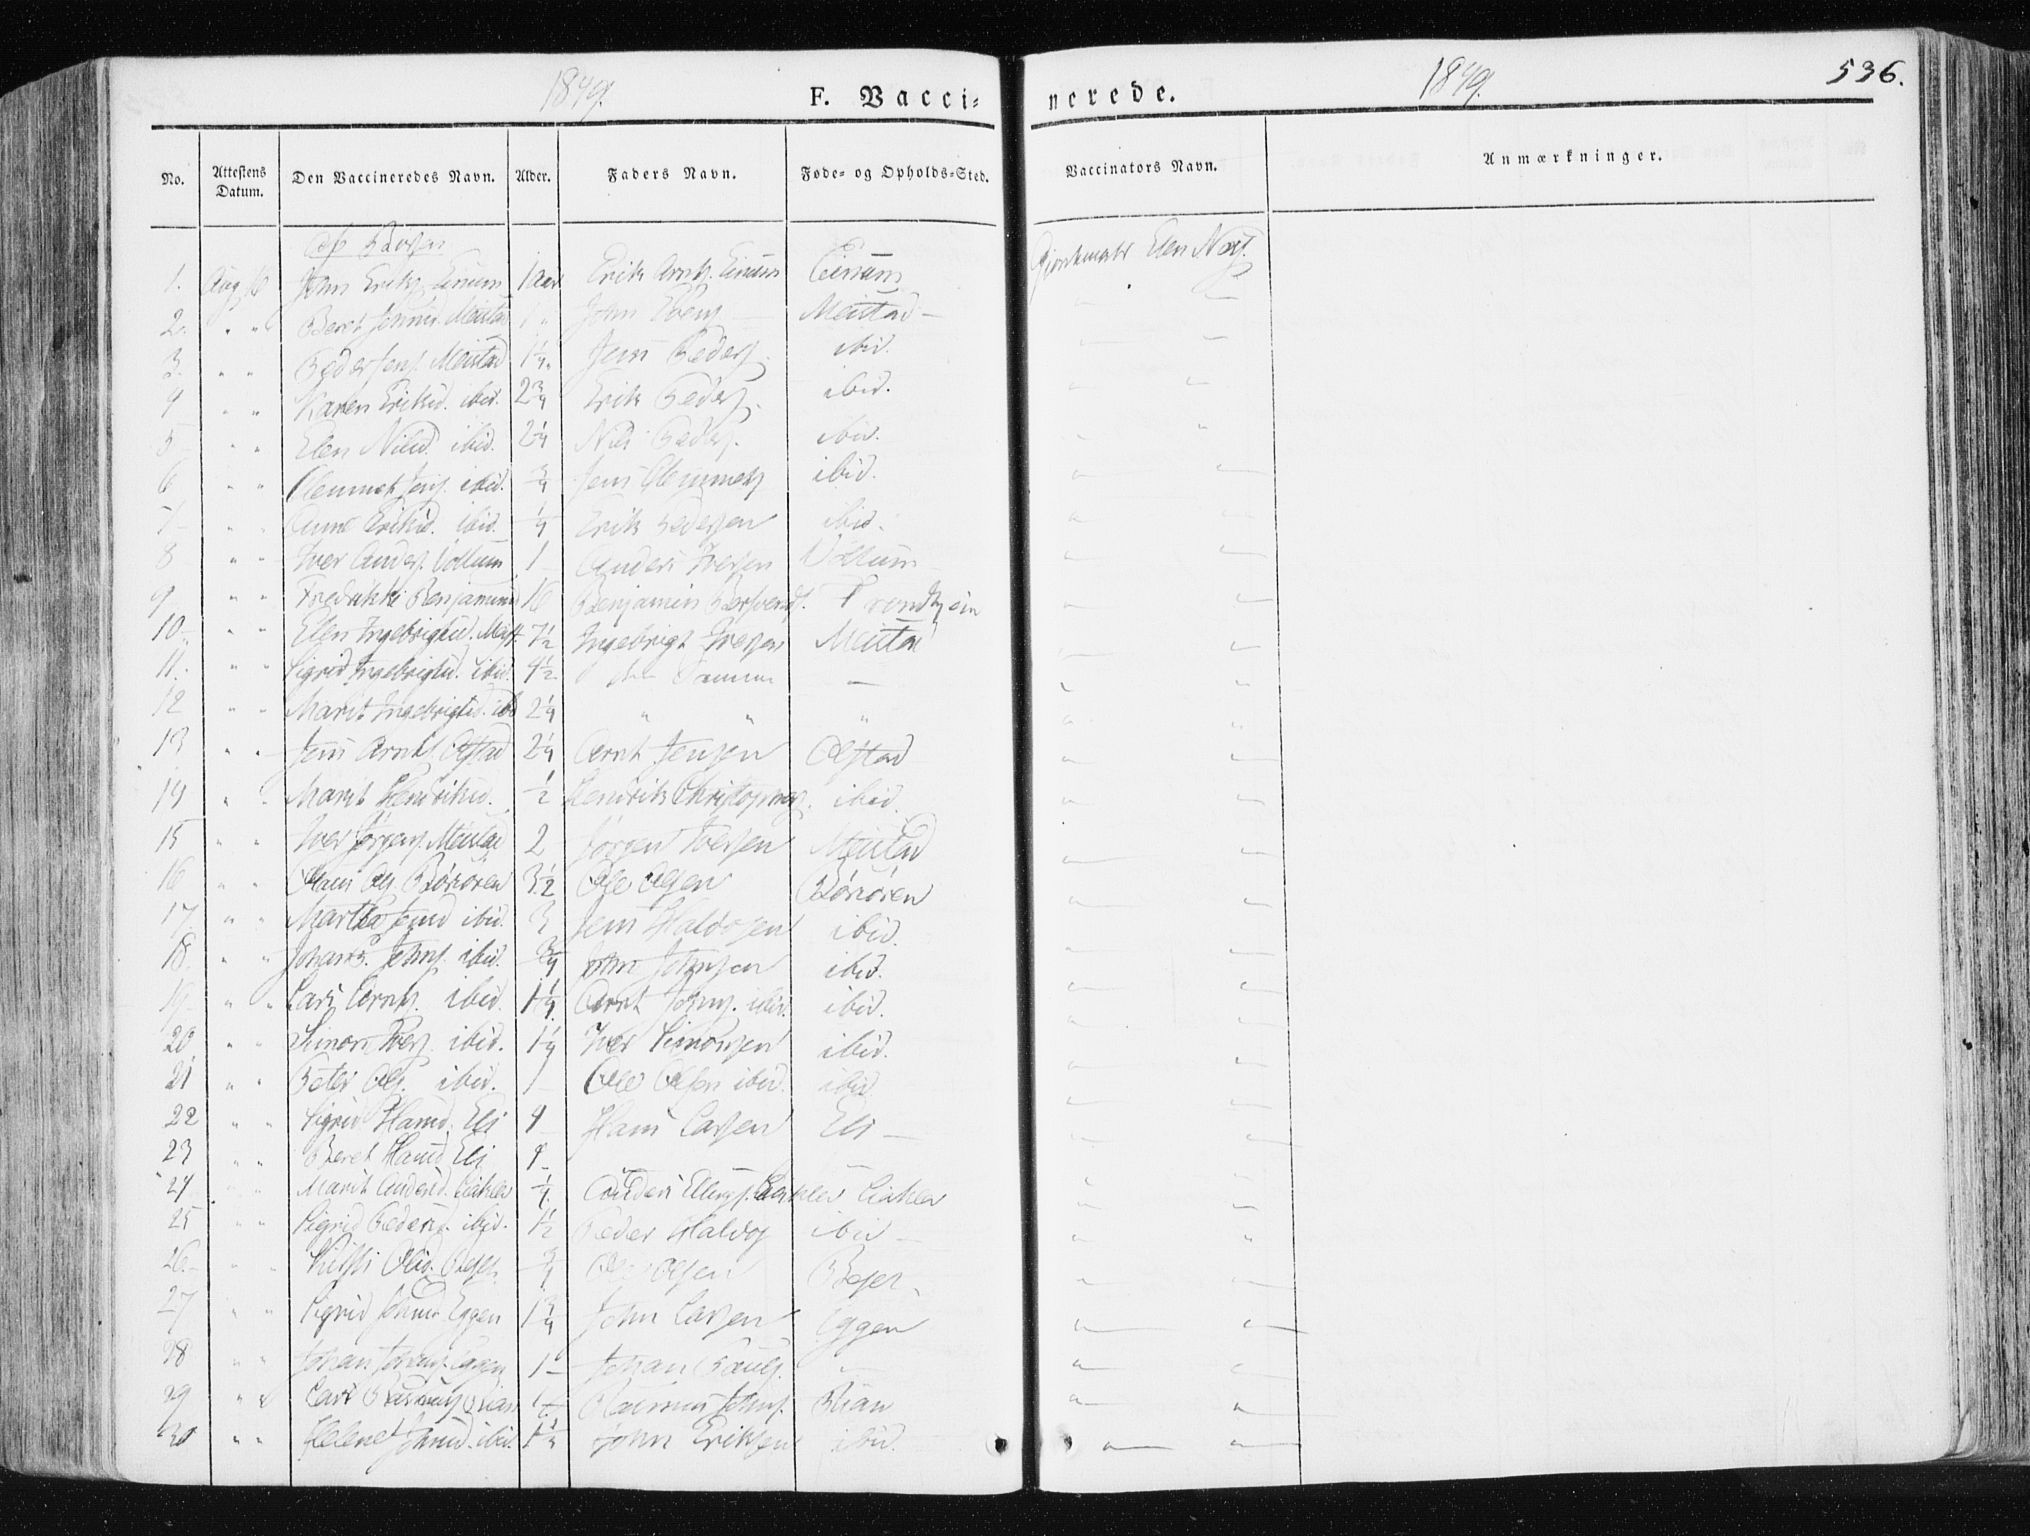 1849. F. Vacci= nerede. 1849. 536.
No. Attestens Datum. Den Vaccineredes Navn. Alder. Faders Navn. Føde- og Opholds-Sted. Vaccinators Navn. Anmærkninger.
1. Aug 16 John Eriks. Einum 1 aar Erik Arnts. Einum Einum Gjordemoder Elen
2. " " Beret Johnsd. Meistad 1 " John Meistad
3. " " Peder Jens. Meistad 1 1/4 Jens Peders. ibid.
4 " " Karen Eriksd. ibid. 2 3/4 Erik Peders. ibid.
5 " " Elen Nilsd. ibid. 2 1/4 Nils Peders. ibid.
6 " " Clemmet Jens. ibid. 3/4 Jens Clemmets. ibid.
7 " " Anne Eriksd. ibid. 1/4 Erik Pedersen ibid.
8 " " Iver Anders. Vollum 1 Anders Iversen Vollum
9 " " Fredrikke Benjaminsd. 16 Benjamin Trondhjem
10 " " Elen Ingebrigtsd. Meist. 7 1/2 Ingebrigt Iversen Meistad
11. " " Sigrid Ingebrigtsd. ibid. 4 1/2 den Samme —
12 " " Marit Ingebrigtsd. ibid 2 1/4 " " "
13 " " Jens Arnts. Olstad 2 1/4 Arnt Jensen Olstad
14 " " Marit Henriksd. 1/2 Henrik Christophers. ibid.
15 " " Iver Jørgens. Meistad 2 Jørgen Iversen Meistad
16 " " Hans Ols. Børøren 3 1/2 Ole Olsen Børøren
17. " " Martha Jensd ibid. 3 Jens Haldosen ibid.
18. " " Johans. Johns. ibid. 3/4 John Johnsen ibid.
19 " " Lars Arnts. ibid 1 1/4 Arnt Johns. ibid. ibid.
20 " " Simon Ivers. ibid. 1 1/4 Iver Simonsen ibid.
21 " " Peter Ols. ibid. 1 Ole Olsen ibid. ibid
22 " " Sigrid Hansd. Eli 4 Hans Larsen Eli —
23 " " Beret Hansd. Eli 4
24 " " Marit Andersd. Leikler 1/4 Anders Ellings. Leikler Leikler
25 " " Sigrid Pedersd. ibid. 1 1/2 Peder Haldos ibid
26. " " Olsd. 3/4 Ole Olsen
27 " " Sigrid Johnsd. Eggen 1 3/4 John Larsen Eggen
28 " " Johan Johans. Eggen 1 — Johan Pauls. "
29 " " Lars Rasmus. Rian Rasmus Johns. Rian
30 " " Helene Johnsd. ibid. John Eriksen ibid.